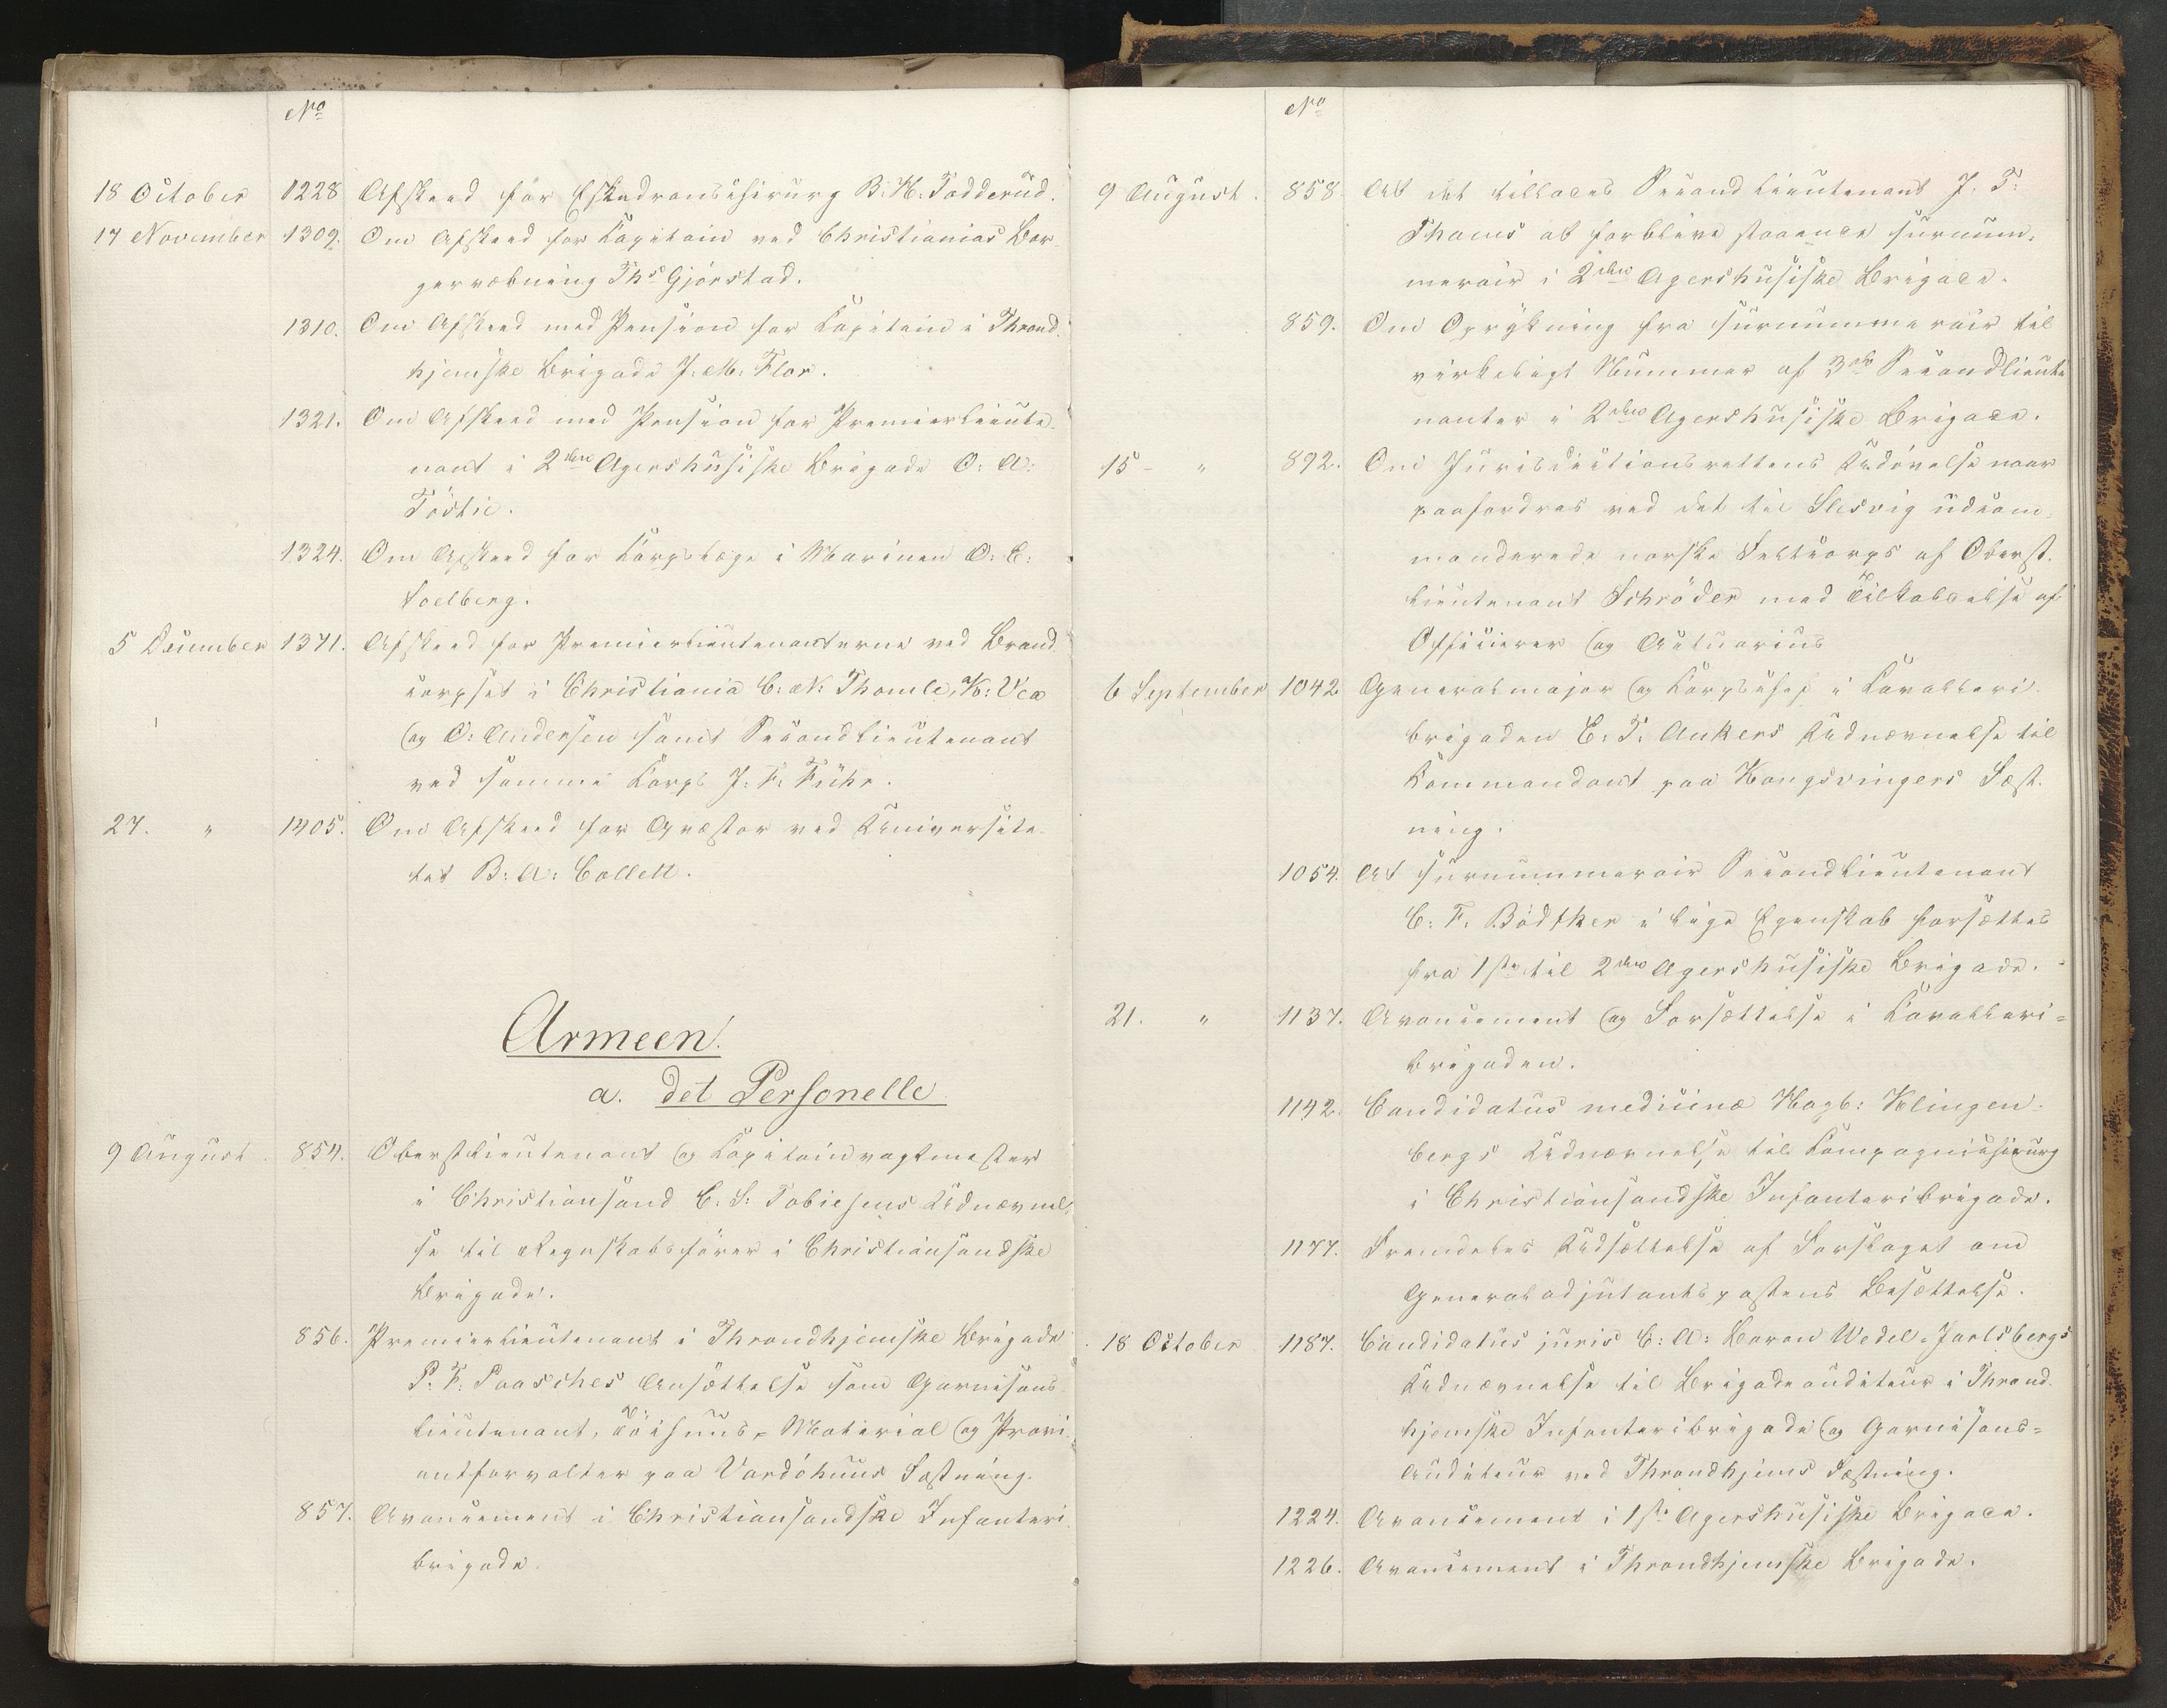 No
18 October 1228 Afskeed for Eskadronschirurg B. H. Todderud.
17 November 1309. Om Afskeed for Kapitain ved Christianias Bor-
gervæbning Ths Gjörstad.
1310. Om Afskeed med Pension for Kapitain i Thrond-
hjemske Brigade J. M. Flor.
1321. Om Afskeed med Pension for Premierlieute-
nant i 2den Agershusiske Brigade O: A:
Töstie.
1324. Om Afskeed for Korpslæge i Marinen O: C:
Soelberg.
5 December 1371. Afskeed for Premierlieutenanterne ved Brand-
corpset i Christiania C: N: Thomle, K: Vea
og O: Andersen samt Secondlieutenant
ved samme Korps J. F. Führ.
27. " 1405. Om Afskeed for Qvæstor ved Universite-
tet B: A: Collett.
Armeen.
a. det Personelle
9 August 854. Oberstlieutenant og Kapitainvagtmester
i Christiansand C. S. Tobiesens Udnævnel-
se til Regnskabsförer i Christiansandske
Brigade.
856. Premierlieutenant i Throndhjemske Brigade
P. F. Paasches Ansættelse som Garnisons-
lieutenant, Töihuus- Material og Provi-
antforvalter paa Vardöhuus Fæstning.
857. Avancement i Christiansandske Infanteri-
brigade.
No
9 August. 858. At det tillades Secondlieutenant J. T.
Thams at forblive staaende surnum-
merair i 2den Agershusiske Brigade.
859. Om Oprykning fra surnummerair til
virkeligt Nummer af 3de Secondlieute-
nanter i 2den Agershusiske Brigade.
15 - " 892. Om Jurisdictionsrettens Udövelse naar
paafordres ved det til Slesvig udcom-
manderede norske Feltcorps af Oberst-
lieutenant Schröder med Tilkaldelse af
Officierer og Actuarius
6 September 1042 Generalmajor og Korpschef i Kavalleri-
brigaden C: T: Ankers Udnævnelse til
Kommandant paa Kongsvingers Fæst-
ning.
1054. At surnummerair Secondlieutenant
C: F. Bödtker i lige Egenskab forsættes
fra 1ste til 2den Agershusiske Brigade.
21. " 1137. Avancement og Forsættelse i Kavalleri-
brigaden.
1142. Candidatus medicinæ Hagb: Klingen-
bergs Udnævnelse til Kompagnichirurg
i Christiansandske Infanteribrigade.
1177. Fremdeles Udsættelse af Forslaget om
Generaladjutantspostens Besættelse.
18 October 1187. Candidatus juris C: A: Baron Wedel-Jarlsbergs
Udnævnelse til Brigadeauditeur i Thrond-
hjemske Infanteribrigade og Garnisons-
Auditeur ved Throndhjems Fæstning.
1224. Avancement i 1ste Agershusiske Brigade.
1226. Avancement i Throndhjemske Brigade.